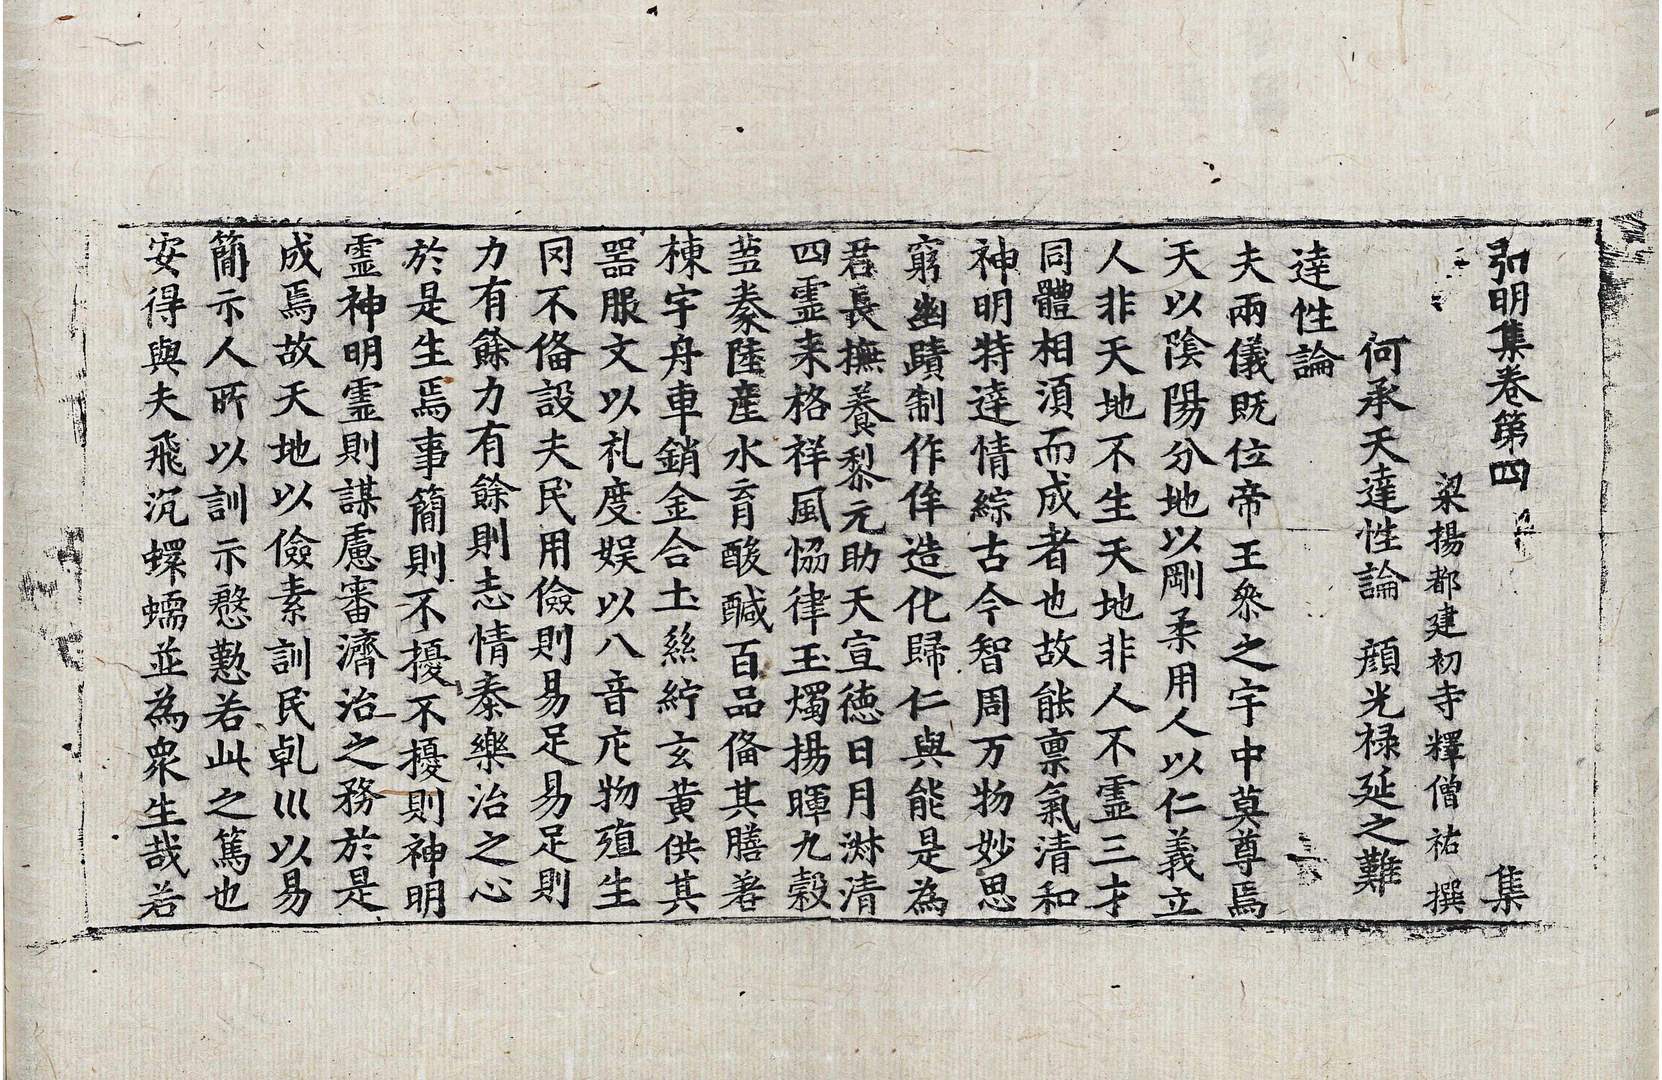 弘明集卷第四 集
梁揚都建初寺釋僧祐撰
何承天達性論 顔光祿延之難
達性論
夫兩儀既位帝王叅之宇中莫尊焉
天以隂陽分地以剛柔用人以仁義立
人非天地不生天地非人不靈三才
同體相湏而成者也故能禀氣清和
神明特達情綜古今智周万物妙思
窮幽賾制作侔造化歸仁與能是為
君長撫養黎元助天宣徳日月淋清
四靈来格祥風恊律玉燭揚暉九穀
蒭豢陸産水育酸醎百品俻其膳羞
棟宇舟車銷金合土絲紵玄黄供其
器服文以礼度娱以八音庀物殖生
罔不俻設夫民用儉則易足易足則
力有餘力有餘則志情泰樂治之心
於是生焉事簡則不擾不擾則神明
靈神明靈則謀慮審濟治之務於是
成焉故天地以儉素訓民乹巛以易
簡示人所以訓示慇懃若此之篤也
安得與夫飛沉蠉蠕並為衆生哉若